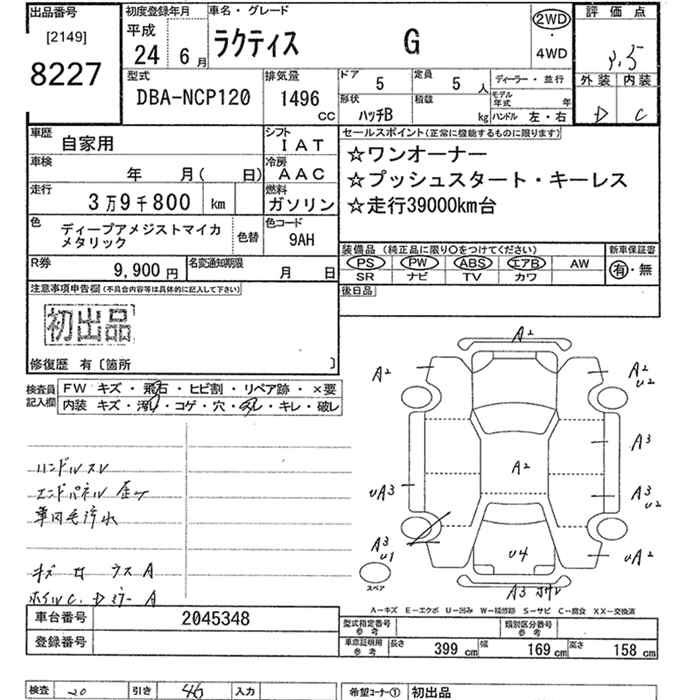 出品番号
[2149]
8227
初度登録年月
平成
24 6月
車名・グレード
ラクティス G
2WD
・
4WD
評価点
外装 内装
D C
型式
DBA-NCP120
排気量
1496 CC
ドア
5
定員
5 人
形状
ハッチB
積載
kg
ディーラー・並行
モデル年式 年
ハンドル 左・右
車歴
自家用
シフト
IAT
車検
年 月( 日)
冷房
AAC
走行
3万9千800 km
燃料
ガソリン
色
ディープアメジストマイカ
メタリック
色替
色コード
9AH
R券
9,900 円
名変通知期限
月 日
セールスポイント(正常に機能するものに限ります)
☆ワンオーナー
☆プッシュスタート・キーレス
☆走行39000km台
装備品(純正品に限り〇をつけてください)
PS PW ABS エアB AW
SR ナビ TV カワ
新車保証書
有・無
後日品
注意事項申告欄(不具合内容等は具体的に記入して下さい)
初出品
修復歴 有〔箇所 〕
検査員
記入欄
FW キズ・飛石・ヒビ割・リペア跡・×要
内装 キズ・汚れ・コゲ・穴・スレ・キレ・破レ
ハンドルスレ
エンドパネル歪ケ
車内毛汚水
A2
A2
A2
U2
A3
A2
UA3
A3
U2
A3
U1
U4
UA2
A3
スペア
A-キズ E-エクボ U-凹み W-補修跡 S-サビ C-腐食 XX-交換済
車台番号
2045348
登録番号
型式指定番号
参考
類別区分番号
参考
車庫証明用
参考
長さ 399 cm
幅 169 cm
高さ 158 cm
検査 20
引き 46
入力
希望コーナー①
初出品